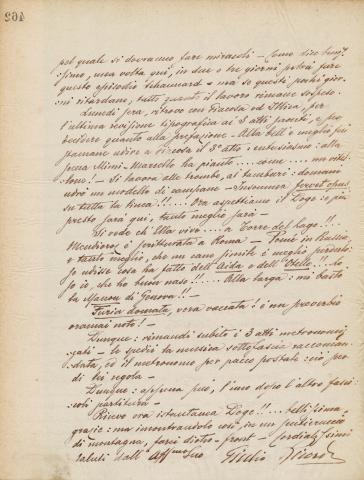 264
pel quale si dovranno fare miracoli – Sono dice benis-
simo, una volta qui, in due o tre giorni potrà fare
questo episodio Schaunard – ma se questi pochi gior-
ni ritardano, tutto quanto il lavoro rimane sospeso.
Lunedì sera, ritrovo con Giacosa ed Illica, per
l'ultima revisione tipografica ai 3 atti pronti, e per
decidere quanto alla prefazione – Alla bell'e meglio feci
stamane udire a Giacosa il 3° atto: entusiasmo: alla
scena Mimì-Marcello ha pianto .... come .... un vitel-
lone! – Si lavora alle trombe, ai tamburi: domani
udrò un modello di campane – Insomma fervet opus
su tutta la linea!!!... Ora aspettiamo il Doge: e più
presto sarà qui, tanto meglio sarà –
Si vede ch'Ella vive .... a Torre del Lago!!...
Mendioroz è scritturata a Roma – Pomè in Russia
e tanto meglio, che un cane simile è meglio perderlo:
Io udissi cosa ha fatto dell'Aida e dell'Otello!!... lo
so io, che ho buon naso!.... Alla larga: mi bastò
la Manon di Genova!! –
Furia domata, vera cascata! è un proverbio
oramai noto! –
Dunque: rimandi subito i 3 atti metronomiz-
zati – le spedii la musica sottofascia raccoman-
data, ed il metronomo per pacco postale: ciò per
di lei regola –
Dunque: appena può, l'uno dopo l'altro fasci-
coli partitura –
Ricevo ora istantanea Doge!!... bellissima,
grazie: ma incontrandolo così, in un sentieruccio
di montagna, farei dietro-front – Cordialissimi
saluti dall'Aff.mo suo Giulio Ricordi